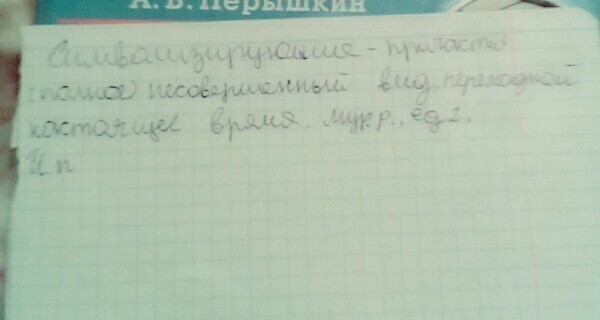 А. В. Пёрышкин
Символизирующие - причастие
(полное) несовершенный вид, переходной
настоящее время, муж.р., ед.ч,
И п